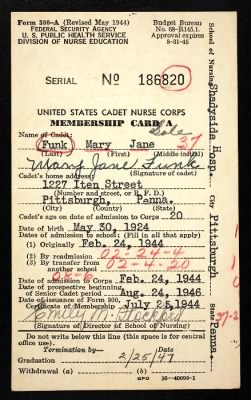 Form 300-A (Revised May 1944)
FEDERAL SECURITY AGENCY
U. S. PUBLIC HEALTH SERVICE
DIVISION OF NURSE EDUCATION
Budget Bureau
No. 68-R145.1.
Approval expires
8-31-45
SERIAL No 186820
UNITED STATES CADET NURSE CORPS
MEMBERSHIP CARD A
Name of Cadet:
Funk Mary Jane 37
(Last) (First) (Middle initial)
Mary Jane Funk
Cadet's home address: (Signature of cadet)
1227 Iten Street
(Number and street, or R. F. D.)
Pittsburgh, Penna.
(City) (County) (State)
Cadet's age on date of admission to Corps 20
Date of birth May 30, 1924
Dates of admission to school: (Fill in all that apply)
(1) Originally Feb. 24, 1944
(2) By readmission 02-24-4
(3) By transfer from 02-4-20
another school
Date of admission to Corps Feb. 24, 1944
Date of prospective beginning
of Senior Cadet period Aug. 24, 1946
Date of issuance of Form 300,
Certificate of Membership July 25, 1944
(Signature of Director of School of Nursing)
Do not write below this line (this space is for central
office use).
Termination by— Date
Graduation 2/25/47
Withdrawal (a) (b)
GPO 16-40098-1
School of Nursing Shadyside Hosp.
City Pittsburgh
State Penna.
37-2